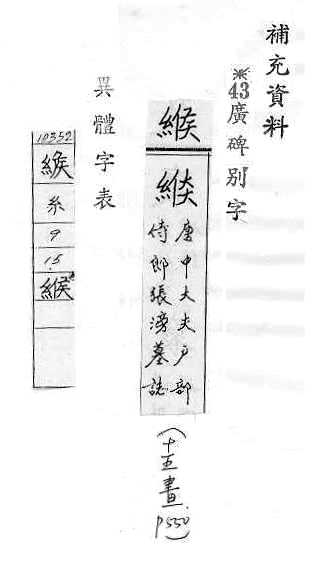 補充資料
※43廣碑別字
緱
唐中大夫戶部
侍郎張滂墓誌
(十五畫 P550)
異體字表
10352
糸
9
15
緱